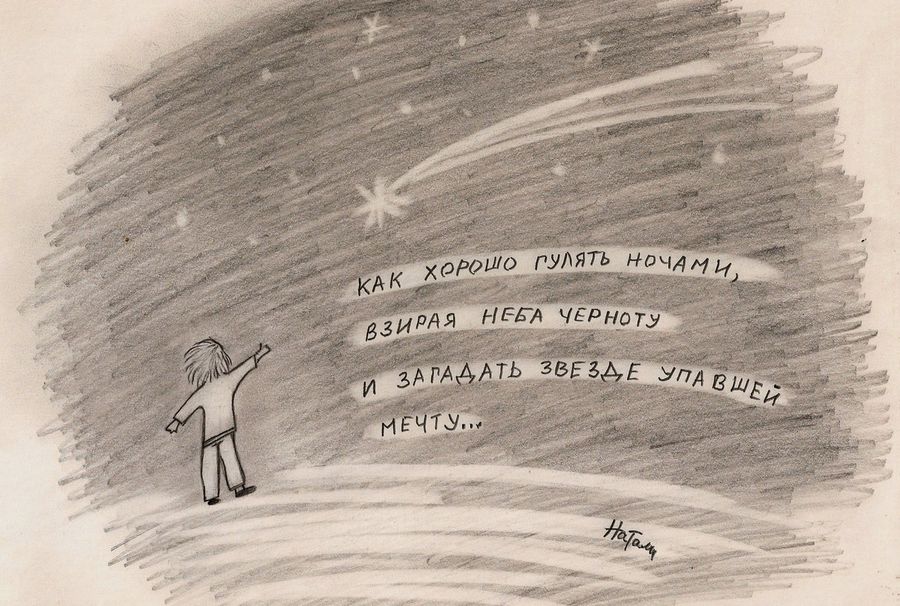 КАК ХОРОШО ГУЛЯТЬ НОЧАМИ,
ВЗИРАЯ НЕБА ЧЕРНОТУ
И ЗАГАДАТЬ ЗВЕЗДЕ УПАВШЕЙ
МЕЧТУ...
Натали